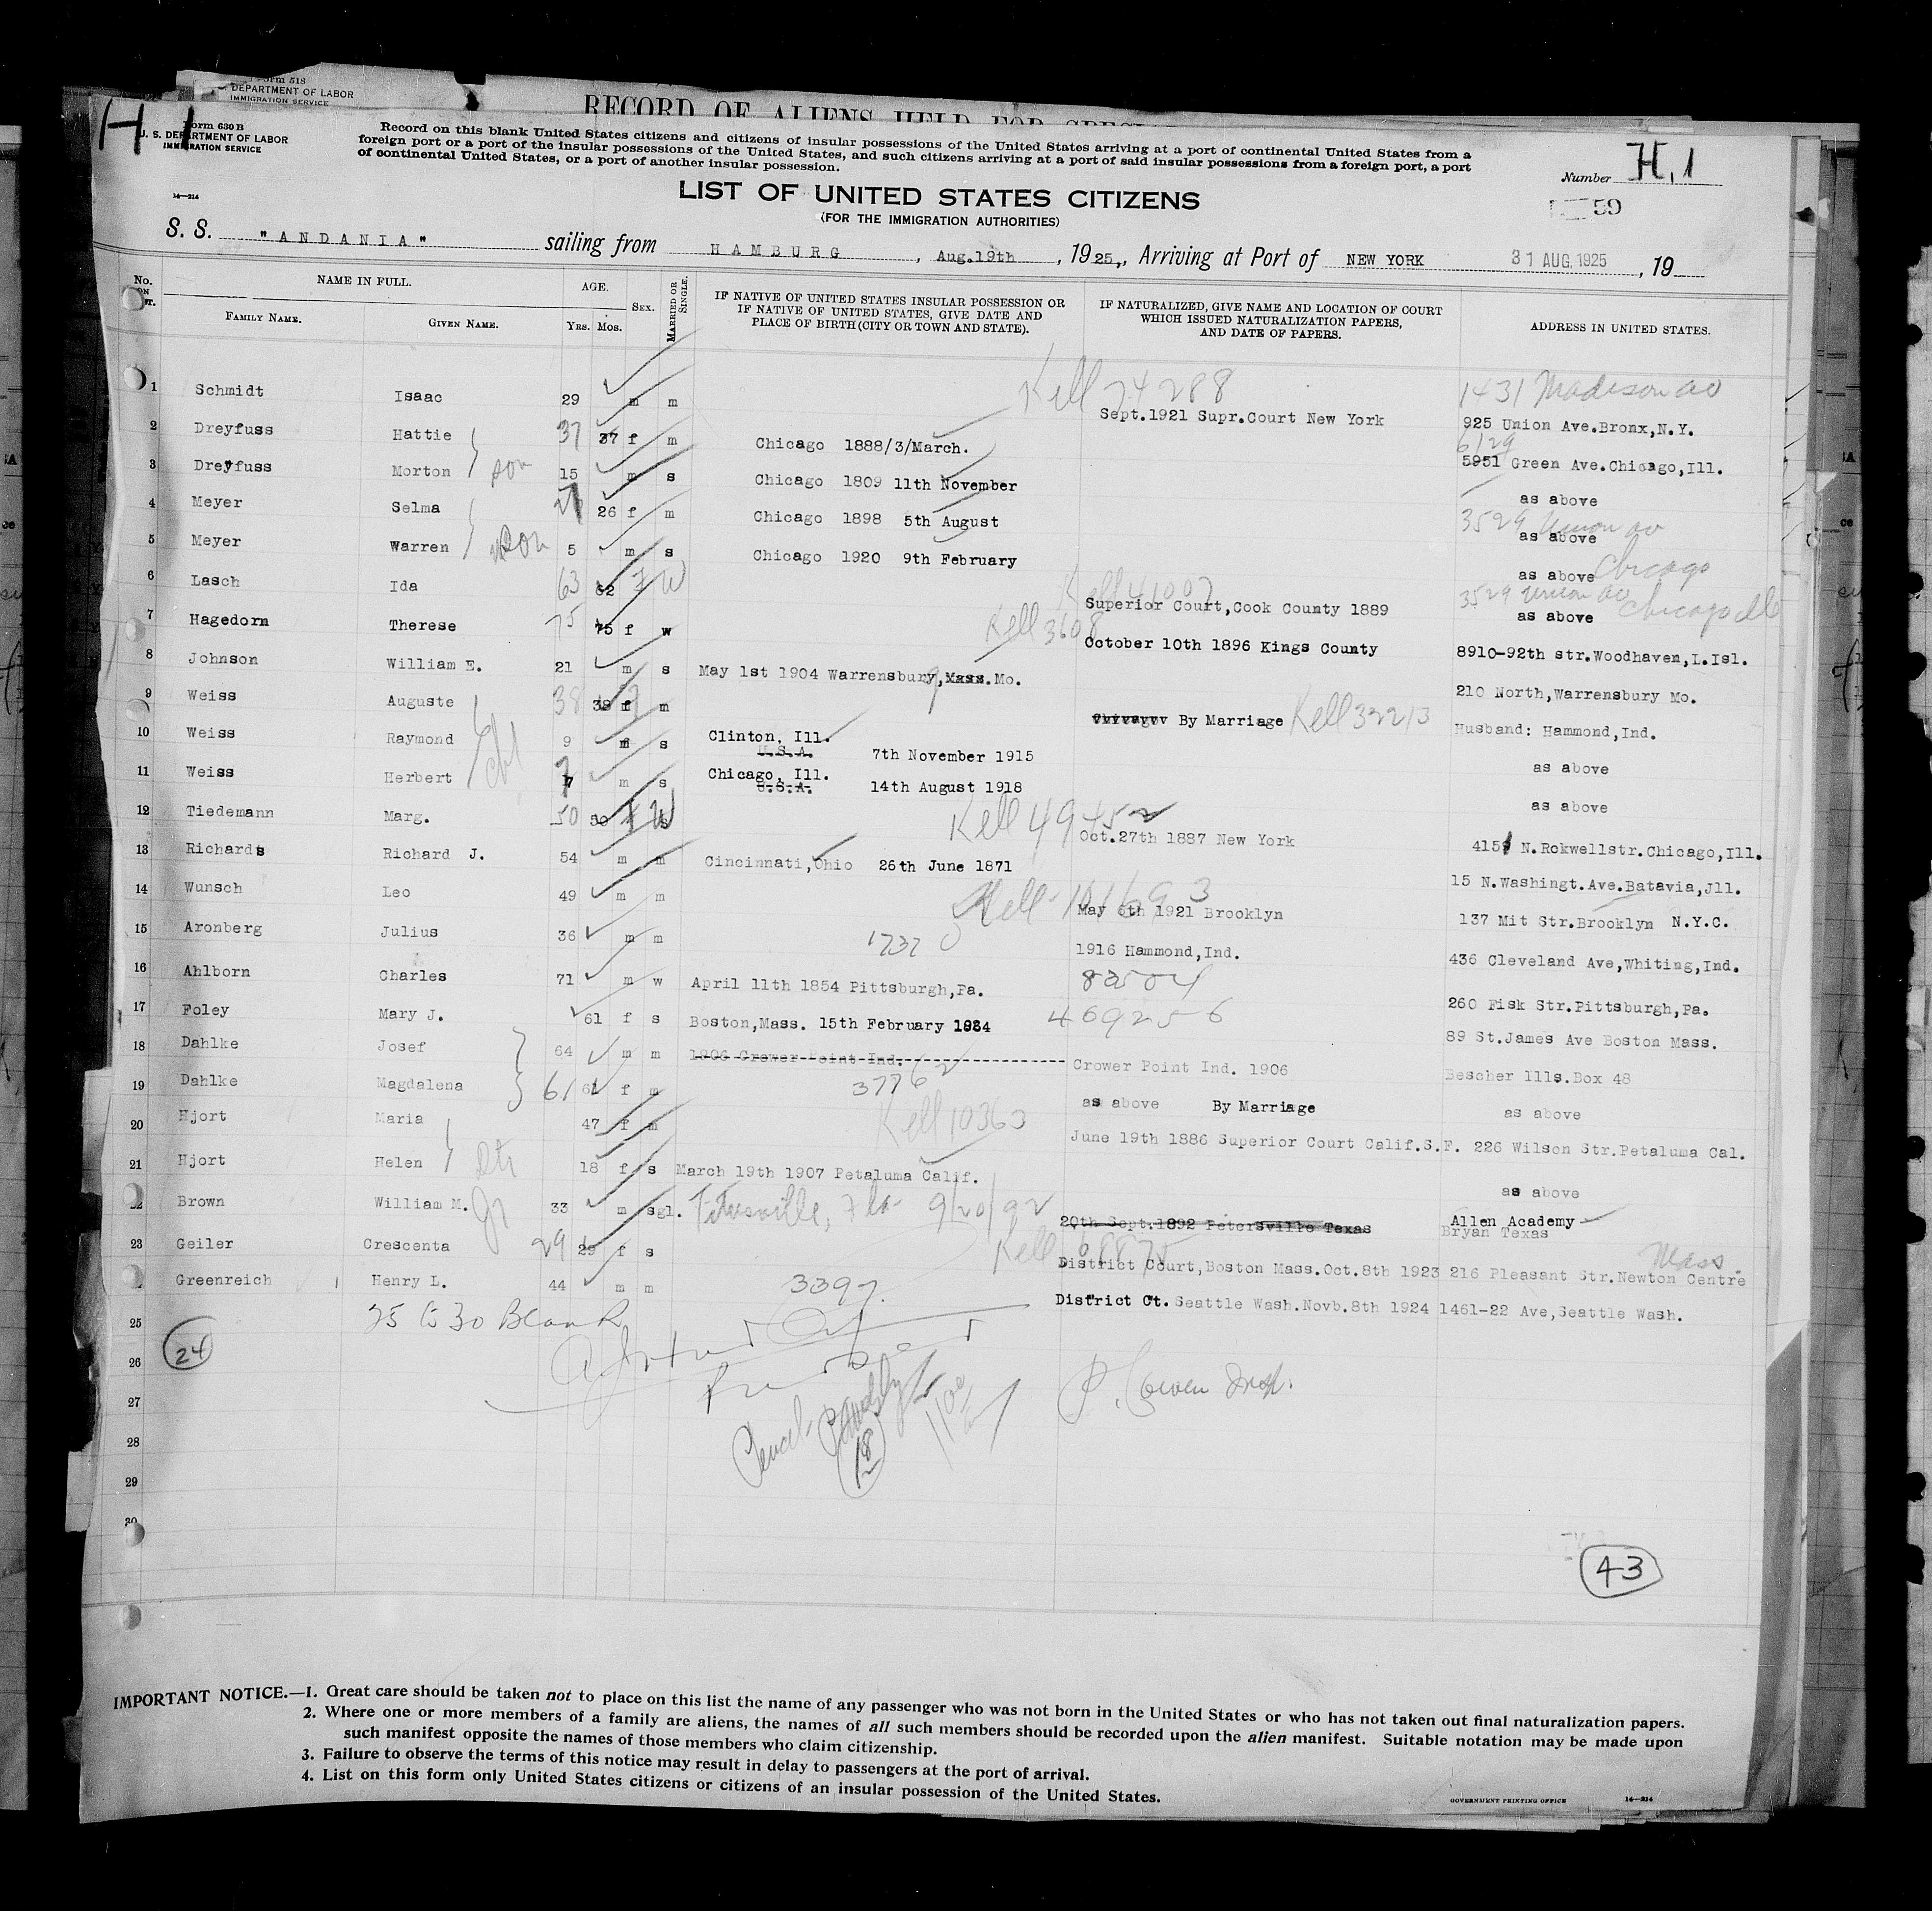 Form 518
DEPARTMENT OF LABOR
IMMIGRATION SERVICE
RECORD OF ALIENS HELD FOR
H 1
Form 630 B
U. S. DEPARTMENT OF LABOR
IMMIGRATION SERVICE
14—214
Record on this blank United States citizens and citizens of insular possessions of the United States arriving at a port of continental United States from a
foreign port or a port of the insular possessions of the United States, and such citizens arriving at a port of said insular possessions from a foreign port, a port
of continental United States, or a port of another insular possession.
Number H, 1
59
LIST OF UNITED STATES CITIZENS
(FOR THE IMMIGRATION AUTHORITIES)
S. S. "ANDANIA" sailing from HAMBURG, Aug.19th, 1925., Arriving at Port of NEW YORK 31 AUG, 1925, 19
No. NAME IN FULL. AGE. SEX. MARRIED OR SINGLE. IF NATIVE OF UNITED STATES INSULAR POSSESSION OR IF NATIVE OF UNITED STATES, GIVE DATE AND PLACE OF BIRTH (CITY OR TOWN AND STATE). IF NATURALIZED, GIVE NAME AND LOCATION OF COURT WHICH ISSUED NATURALIZATION PAPERS, AND DATE OF PAPERS. ADDRESS IN UNITED STATES.
FAMILY NAME. GIVEN NAME. Yrs. Mos.
1 Schmidt Isaac 29 m m Kell 74288 Sept.1921 Supr.Court New York 1431 Madison av
925 Union Ave.Bronx,N.Y.
2 Dreyfuss Hattie 37 37 f m Chicago 1888/3/March. 6129
5951 Green Ave.Chicago,Ill.
3 Dreyfuss Morton son 15 m s Chicago 1809 11th November as above
4 Meyer Selma 26 f m Chicago 1898 5th August 3529 Union av
as above
5 Meyer Warren son 5 m s Chicago 1920 9th February as above Chicago
6 Lasch Ida 63 62 f W Kell 41007 Superior Court,Cook County 1889 3529 Union av Chicago Ill
as above
7 Hagedorn Therese 75 75 f w Kell 3608 October 10th 1896 Kings County 8910-92th str.Woodhaven,L.Isl.
8 Johnson William E. 21 m s May 1st 1904 Warrensbury,Mass.Mo. 210 North,Warrensbury Mo.
9 Weiss Auguste 38 38 f m By Marriage Kell 33213 Husband: Hammond,Ind.
10 Weiss Raymond 9 m s Clinton, Ill. U.S.A. 7th November 1915 as above
11 Weiss Herbert 7 m s Chicago, Ill. U.S.A. 14th August 1918 as above
12 Tiedemann Marg. 50 50 f W Kell 49452 Oct.27th 1887 New York 4151 N.Rokwellstr.Chicago,Ill.
13 Richards Richard J. 54 m m Cincinnati,Ohio 26th June 1871 15 N.Washingt.Ave.Batavia,Jll.
14 Wunsch Leo 49 m m Kell 101693 May 6th 1921 Brooklyn 137 Mit Str.Brooklyn N.Y.C.
15 Aronberg Julius 36 m m 1737 1916 Hammond,Ind. 436 Cleveland Ave,Whiting,Ind.
16 Ahlborn Charles 71 m w April 11th 1854 Pittsburgh,Pa. 83504 260 Fisk Str.Pittsburgh,Pa.
17 Foley Mary J. 61 f s Boston,Mass. 15th February 1864 469256 89 St.James Ave Boston Mass.
18 Dahlke Josef 64 m m 1906 Crower Point Ind. Crower Point Ind. 1906 Bescher Ills.Box 48
19 Dahlke Magdalena 61 61 f m 37762 as above By Marriage as above
20 Hjort Maria 47 f m Kell 10363 June 19th 1886 Superior Court Calif.S.F. 226 Wilson Str.Petaluma Cal.
21 Hjort Helen Dtr 18 f s March 19th 1907 Petaluma Calif. as above
22 Brown William M. Jr 33 m sgl. Titusville, Fla 9/20/92 20th Sept.1892 Petersville Texas Allen Academy
Bryan Texas
23 Geiler Crescenta 29 29 f s Kell District Court,Boston Mass.Oct.8th 1923 216 Pleasant Str.Newton Centre Mass.
24 Greenreich Henry L. 44 m m 3397. District Ct. Seattle Wash.Novb.8th 1924 1461-22 Ave,Seattle Wash.
25 25 to 30 Blank
24
26
27 P. Cowen Insp.
28 18
29
30
43
IMPORTANT NOTICE.—1. Great care should be taken not to place on this list the name of any passenger who was not born in the United States or who has not taken out final naturalization papers.
2. Where one or more members of a family are aliens, the names of all such members should be recorded upon the alien manifest. Suitable notation may be made upon
such manifest opposite the names of those members who claim citizenship.
3. Failure to observe the terms of this notice may result in delay to passengers at the port of arrival.
4. List on this form only United States citizens or citizens of an insular possession of the United States.
GOVERNMENT PRINTING OFFICE 14—214